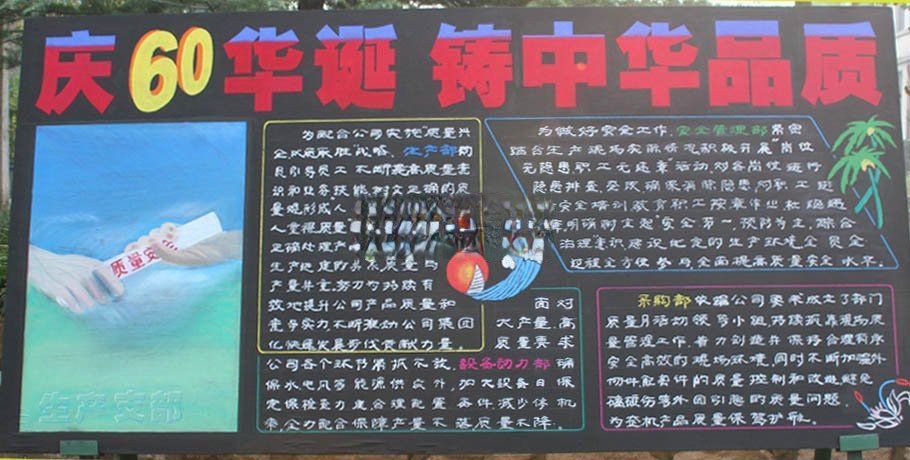 庆60华诞 铸中华品质
质量安全
生产支部
为配合公司实施“质量兴
企以质取胜”战略、生产部构
员引导员工不断提高质量意
识和业务技能,树立正确的质
量观形成“人
人觉得质量
正确处理产
生产地度的关系质量与
产量并重,努力持续有
效地提升公司产品质量和
竞争实力不断推动公司集团
化快速发展步伐贡献力量。
为做好安全工作,安全管理部紧密
结合生产现场实际情况积极开展“岗位
无隐患职工无违章”活动,对各岗位进行
隐患排查采取确保消除隐患向职工进
安全培训教育职工按章作业杜绝违
明确树立起“安全第一、预防为主,综合
治理意识建设优良的生产环境全员全
过程全方位参与,全面提高质量安全水平。
面对
大产量、高
质量要求
公司各个环节常抓不放,设备动力部确
保水电风等能源供应外,加大设备日保
定保检查力度合理配置备件减少停机
率,全力配合保障产量不降质量不降.
采购部依据公司要求成立了部门
质量月活动领导小组,持续抓靠现场质
量管理工作,着力创造并保持合理有序
安全高效的现场环境,同时不断加强外
协件配套件的质量控制和改进避免
磕碰伤等外因引起的质量问题,
为整机产品质量保驾护航。